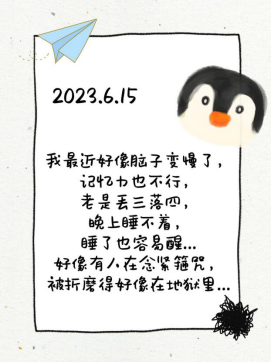 2023.6.15
我最近好像脑子变慢了，
记忆力也不行，
老是丢三落四，
晚上睡不着，
睡了也容易醒...
好像有人在念紧箍咒，
被折磨得好像在地狱里...